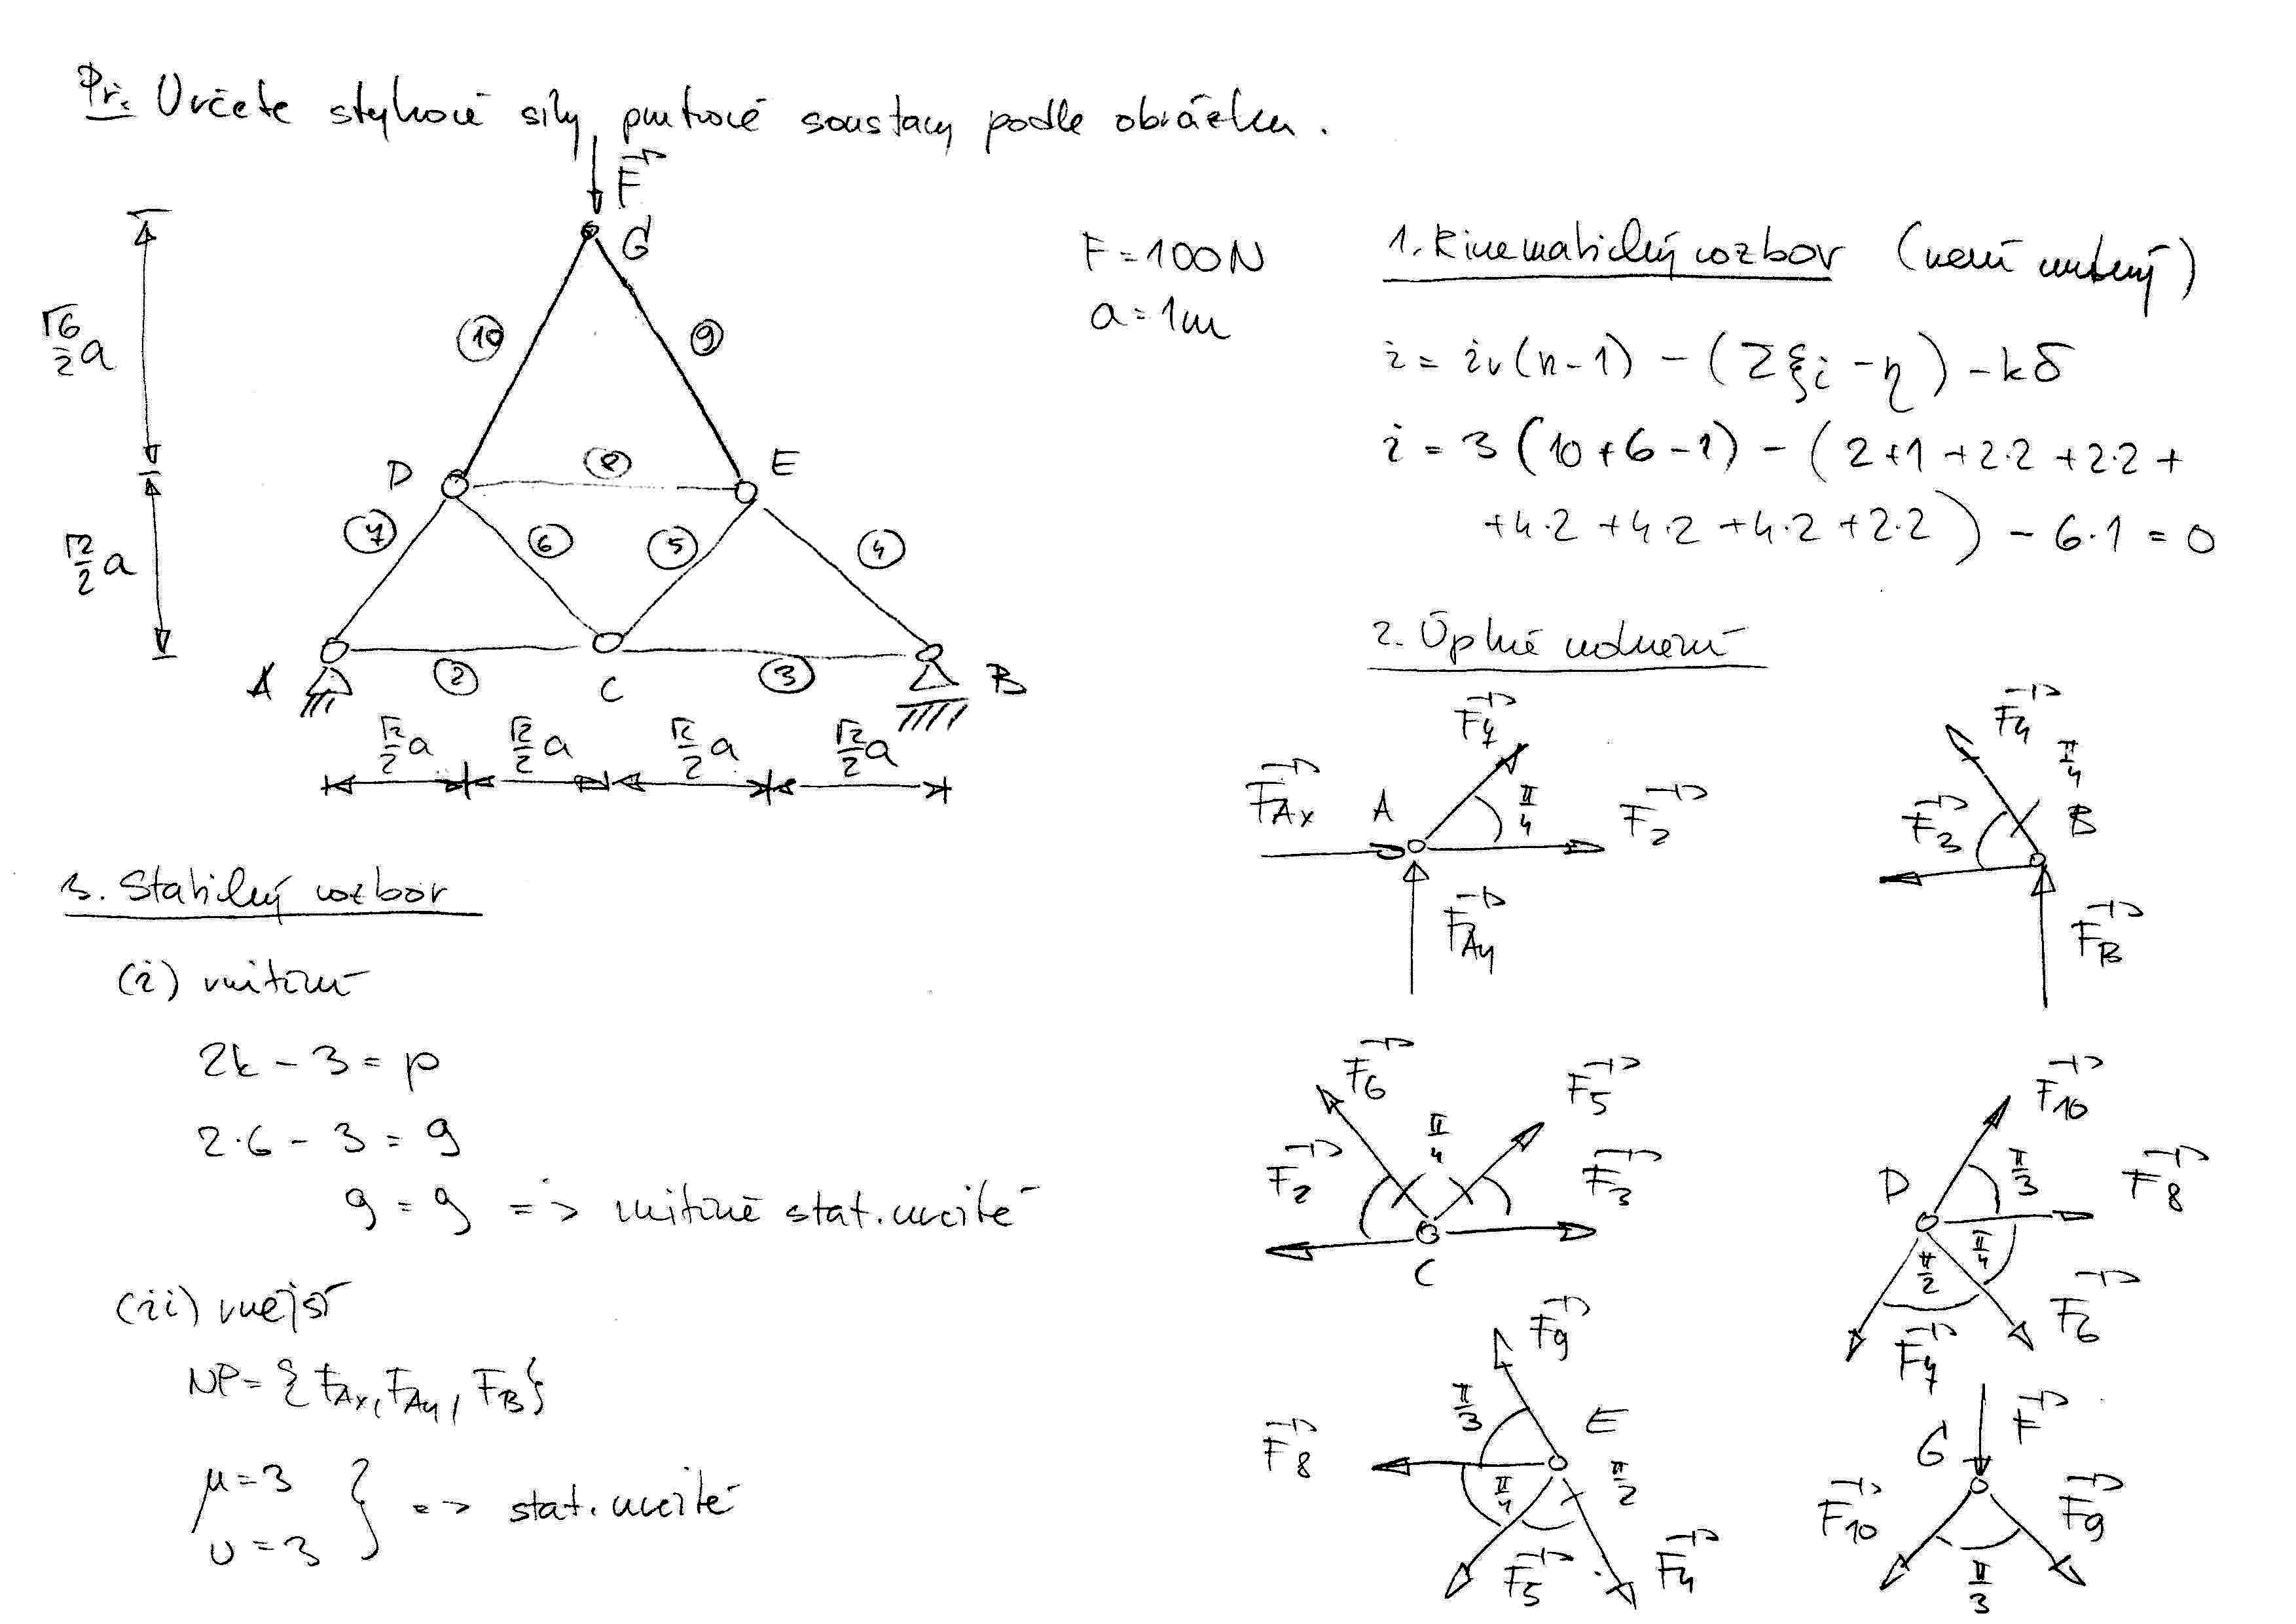 Př: Určete stykové síly prutové soustavy podle obrázku.
F
G
F = 100N
a = 1m
√6/2 a
10
9
D
8
E
√2/2 a
7
6
5
4
A
2
C
3
B
√2/2 a √2/2 a √2/2 a √2/2 a
1. Kinematický rozbor (není nutný)
i = iv(n-1) - (Σξi - η) - kδ
i = 3 (10+6-1) - (2+1+2·2+2·2+
+4·2+4·2+4·2+2·2) - 6·1 = 0
2. Úplné uvolnění
F7
FAx A π/4 F2
FAy
F4
π/4
F3 B
FB
F6 F5
F2 π/4 F3
C
F10
D π/3 F8
π/4
π/2
F6
F7
F9
π/3 E
F8
π/4 π/2
F5 F4
F
G
F10 F9
π/3
3. Statický rozbor
(i) vnitřní
2k - 3 = p
2·6 - 3 = 9
9 = 9 => vnitřně stat. určité
(ii) vnější
NP = {FAx, FAy, FB}
μ = 3
υ = 3 } => stat. určité